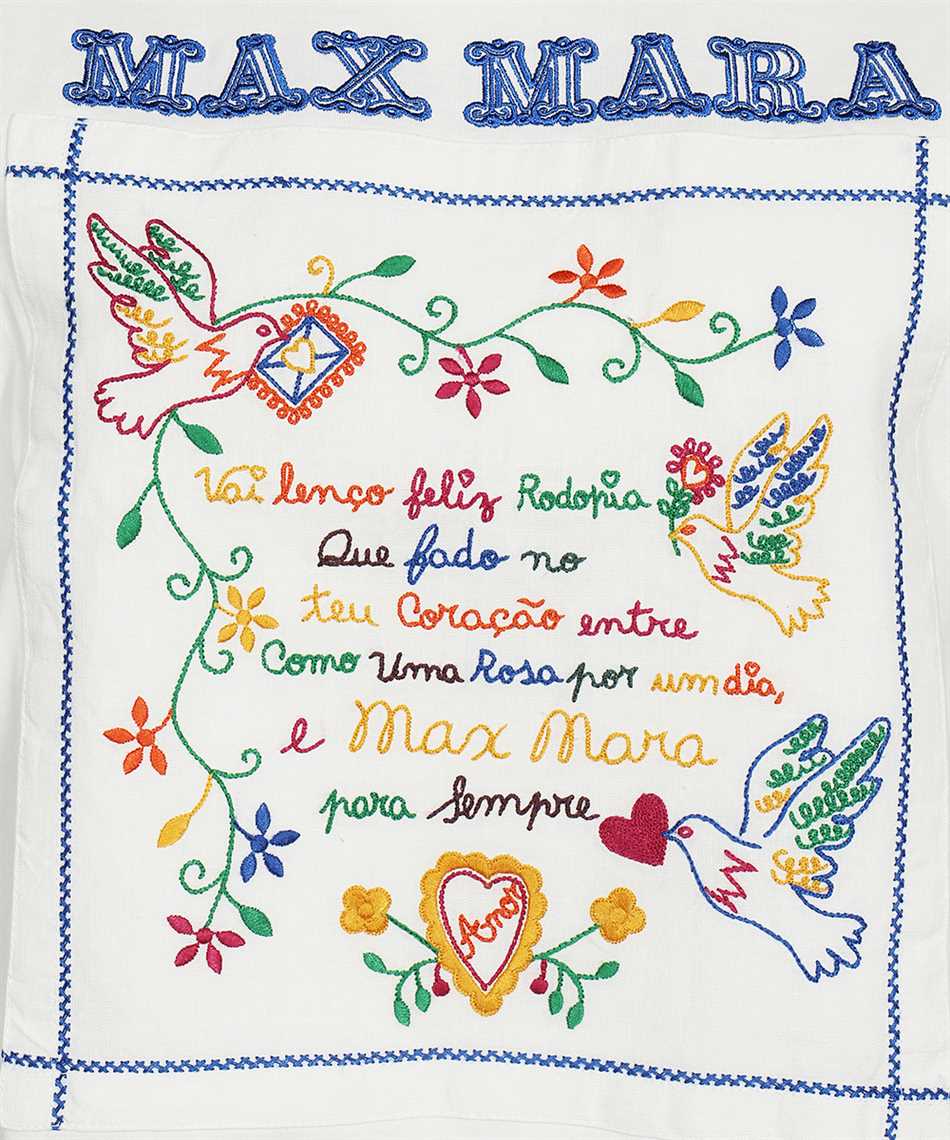 MAX MARA
Vai lenço feliz Rodopia
Que fado no
teu Coração entre
Como Uma Rosa por um dia,
e Max Mara
para Sempre
Amor